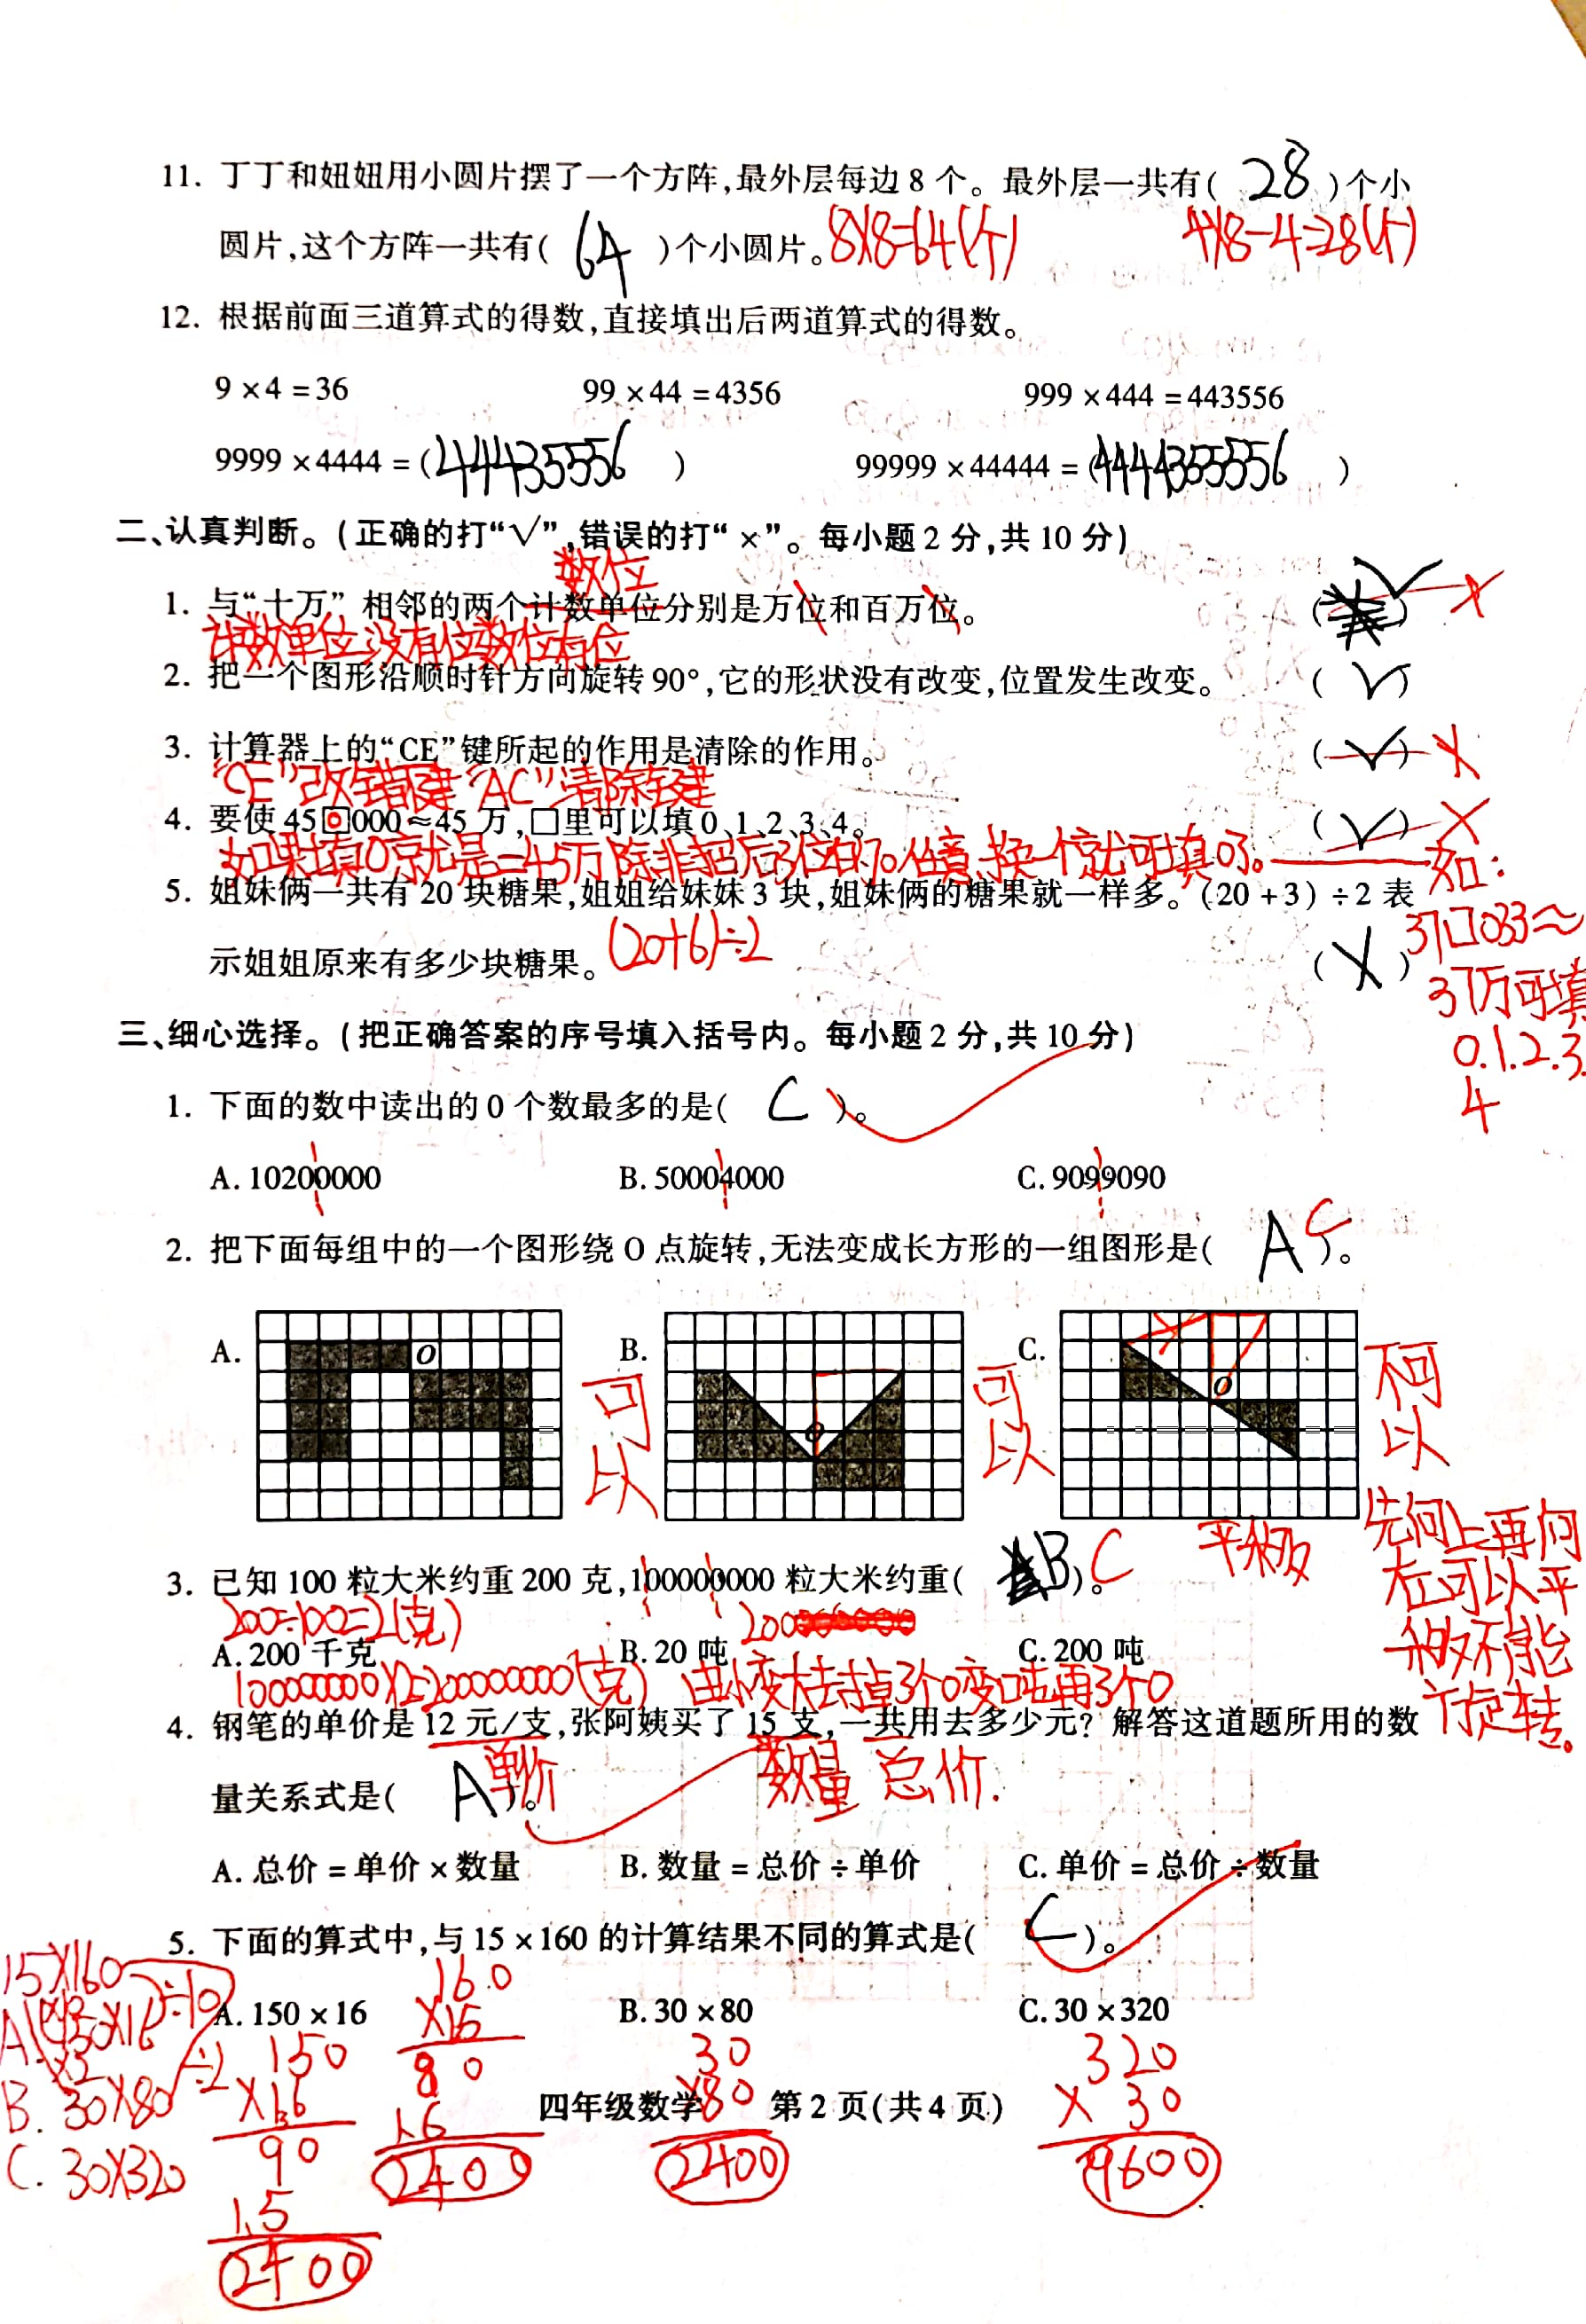 11. 丁丁和妞妞用小圆片摆了一个方阵,最外层每边8个。最外层一共有( 28 )个小
圆片,这个方阵一共有( 64 )个小圆片。 8×8=64(个) 4×8-4=28(个)
12. 根据前面三道算式的得数,直接填出后两道算式的得数。
9×4=36 99×44=4356 999×444=443556
9999×4444=( 44435556 ) 99999×44444=( 4444355556 )
二、认真判断。(正确的打“√”,错误的打“×”。每小题2分,共10分)
数位
1. 与“十万”相邻的两个计数单位分别是万位和百万位。 ( √ ) ×
计数单位没有位数位有位
2. 把一个图形沿顺时针方向旋转90°,它的形状没有改变,位置发生改变。 ( √ )
3. 计算器上的“CE”键所起的作用是清除的作用。 ( √ ) ×
“CE”改错键“AC”清除键
4. 要使45□000≈45万,□里可以填0、1、2、3、4。 ( √ ) ×
如果填0京就是=45万除非把后3位的0任意换一个就可填0了。 如:
5. 姐妹俩一共有20块糖果,姐姐给妹妹3块,姐妹俩的糖果就一样多。(20+3)÷2表
示姐姐原来有多少块糖果。 (20+6)÷2 ( × )
37□033≈
37万可填
0.1.2.3.
4
三、细心选择。(把正确答案的序号填入括号内。每小题2分,共10分)
1. 下面的数中读出的0个数最多的是( C )。
A. 10200000 B. 50004000 C. 9099090
2. 把下面每组中的一个图形绕O点旋转,无法变成长方形的一组图形是( A )。 C
A. O 可以 B. O 可以 C. O 不可以
平移
先向上再向
左可以平
移不能
旋转。
3. 已知100粒大米约重200克,100000000粒大米约重( B )。 C
200÷100=2(克) 200
A. 200千克 B. 20吨 C. 200吨
100000000×2=200000000(克) 由小变大去掉3个0变吨再3个0
4. 钢笔的单价是12元/支,张阿姨买了15支,一共用去多少元?解答这道题所用的数
单价 数量 总价.
量关系式是( A )。
A. 总价=单价×数量 B. 数量=总价÷单价 C. 单价=总价÷数量
5. 下面的算式中,与15×160的计算结果不同的算式是( C )。
A. 150×16 B. 30×80 C. 30×320
15×160
÷10
×2
÷2
B. 30×80
C. 30×320
150
×16
90
15
2400
160
×15
80
16
2400
30
×80
2400
320
× 30
9600
四年级数学 第2页(共4页)